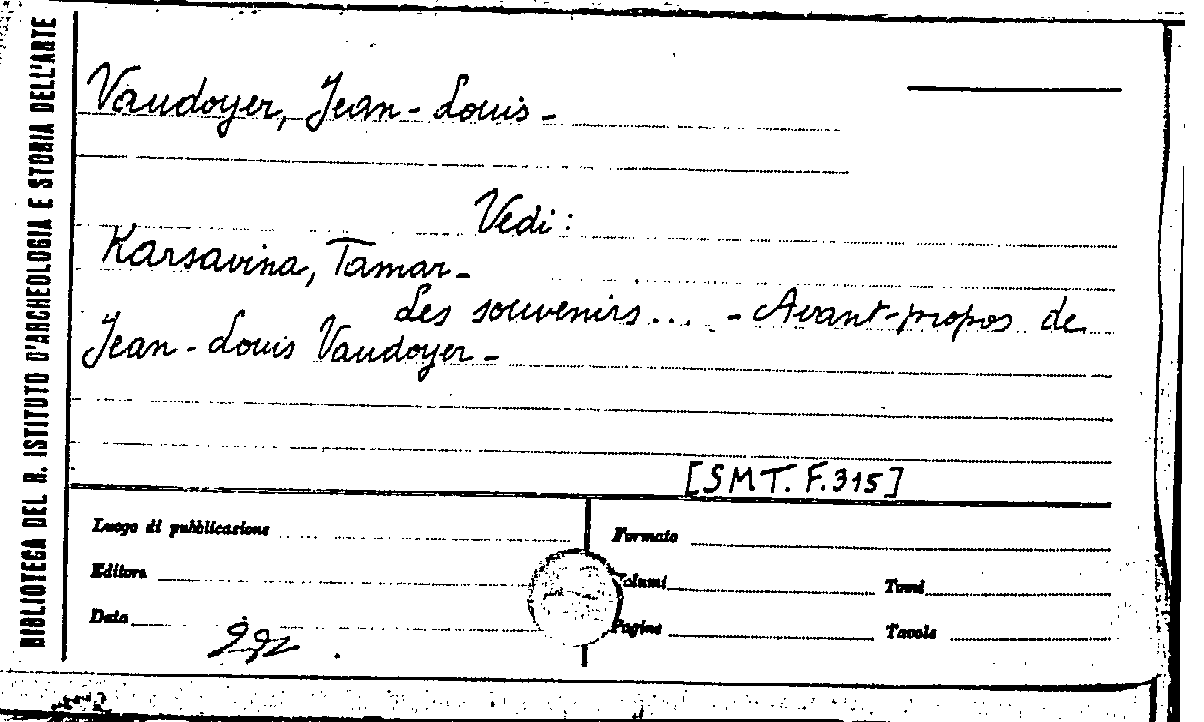 BIBLIOTECA DEL R. ISTITUTO D'ARCHEOLOGIA E STORIA DELL'ARTE
Vaudoyer, Jean-Louis -
Vedi:
Karsavina, Tamar -
Les souvenirs ... - Avant-propos de
Jean-Louis Vaudoyer -
[SMT. F.315]
Luogo di pubblicazione
Formato
Editore
Volumi
Tomi
Data
Pagine
Tavole